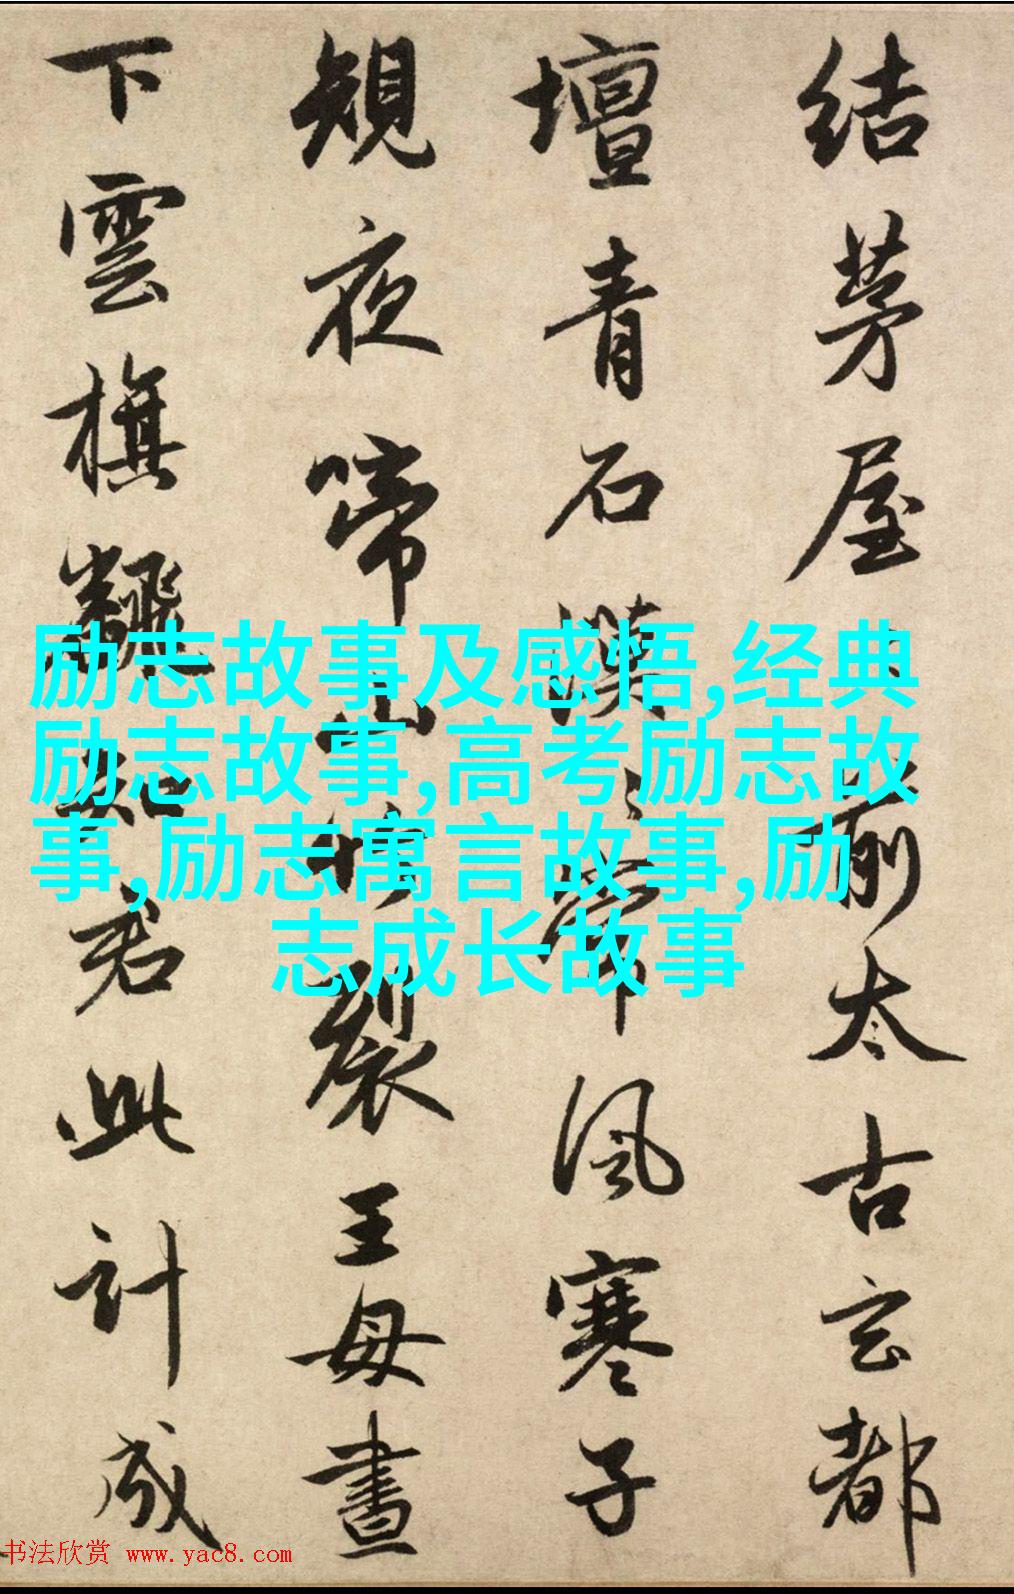 結茅屋前太古玄都
壇青石漠〻常風寒子
規夜啼山竹裂王母晝
下雲旗飜知君此計成
励志故事及感悟,经典
励志故事,高考励志故
事,励志寓言故事,励
志成长故事
书法欣赏 www.yac8.com